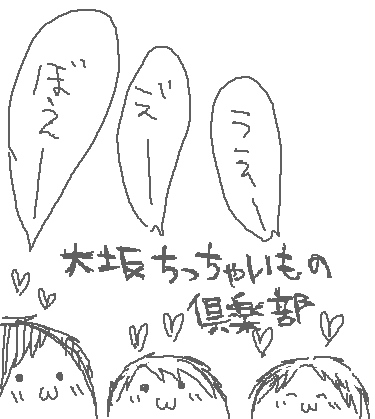 ぼえー
ごえー
うえー
大坂ちっちゃいもの
倶楽部